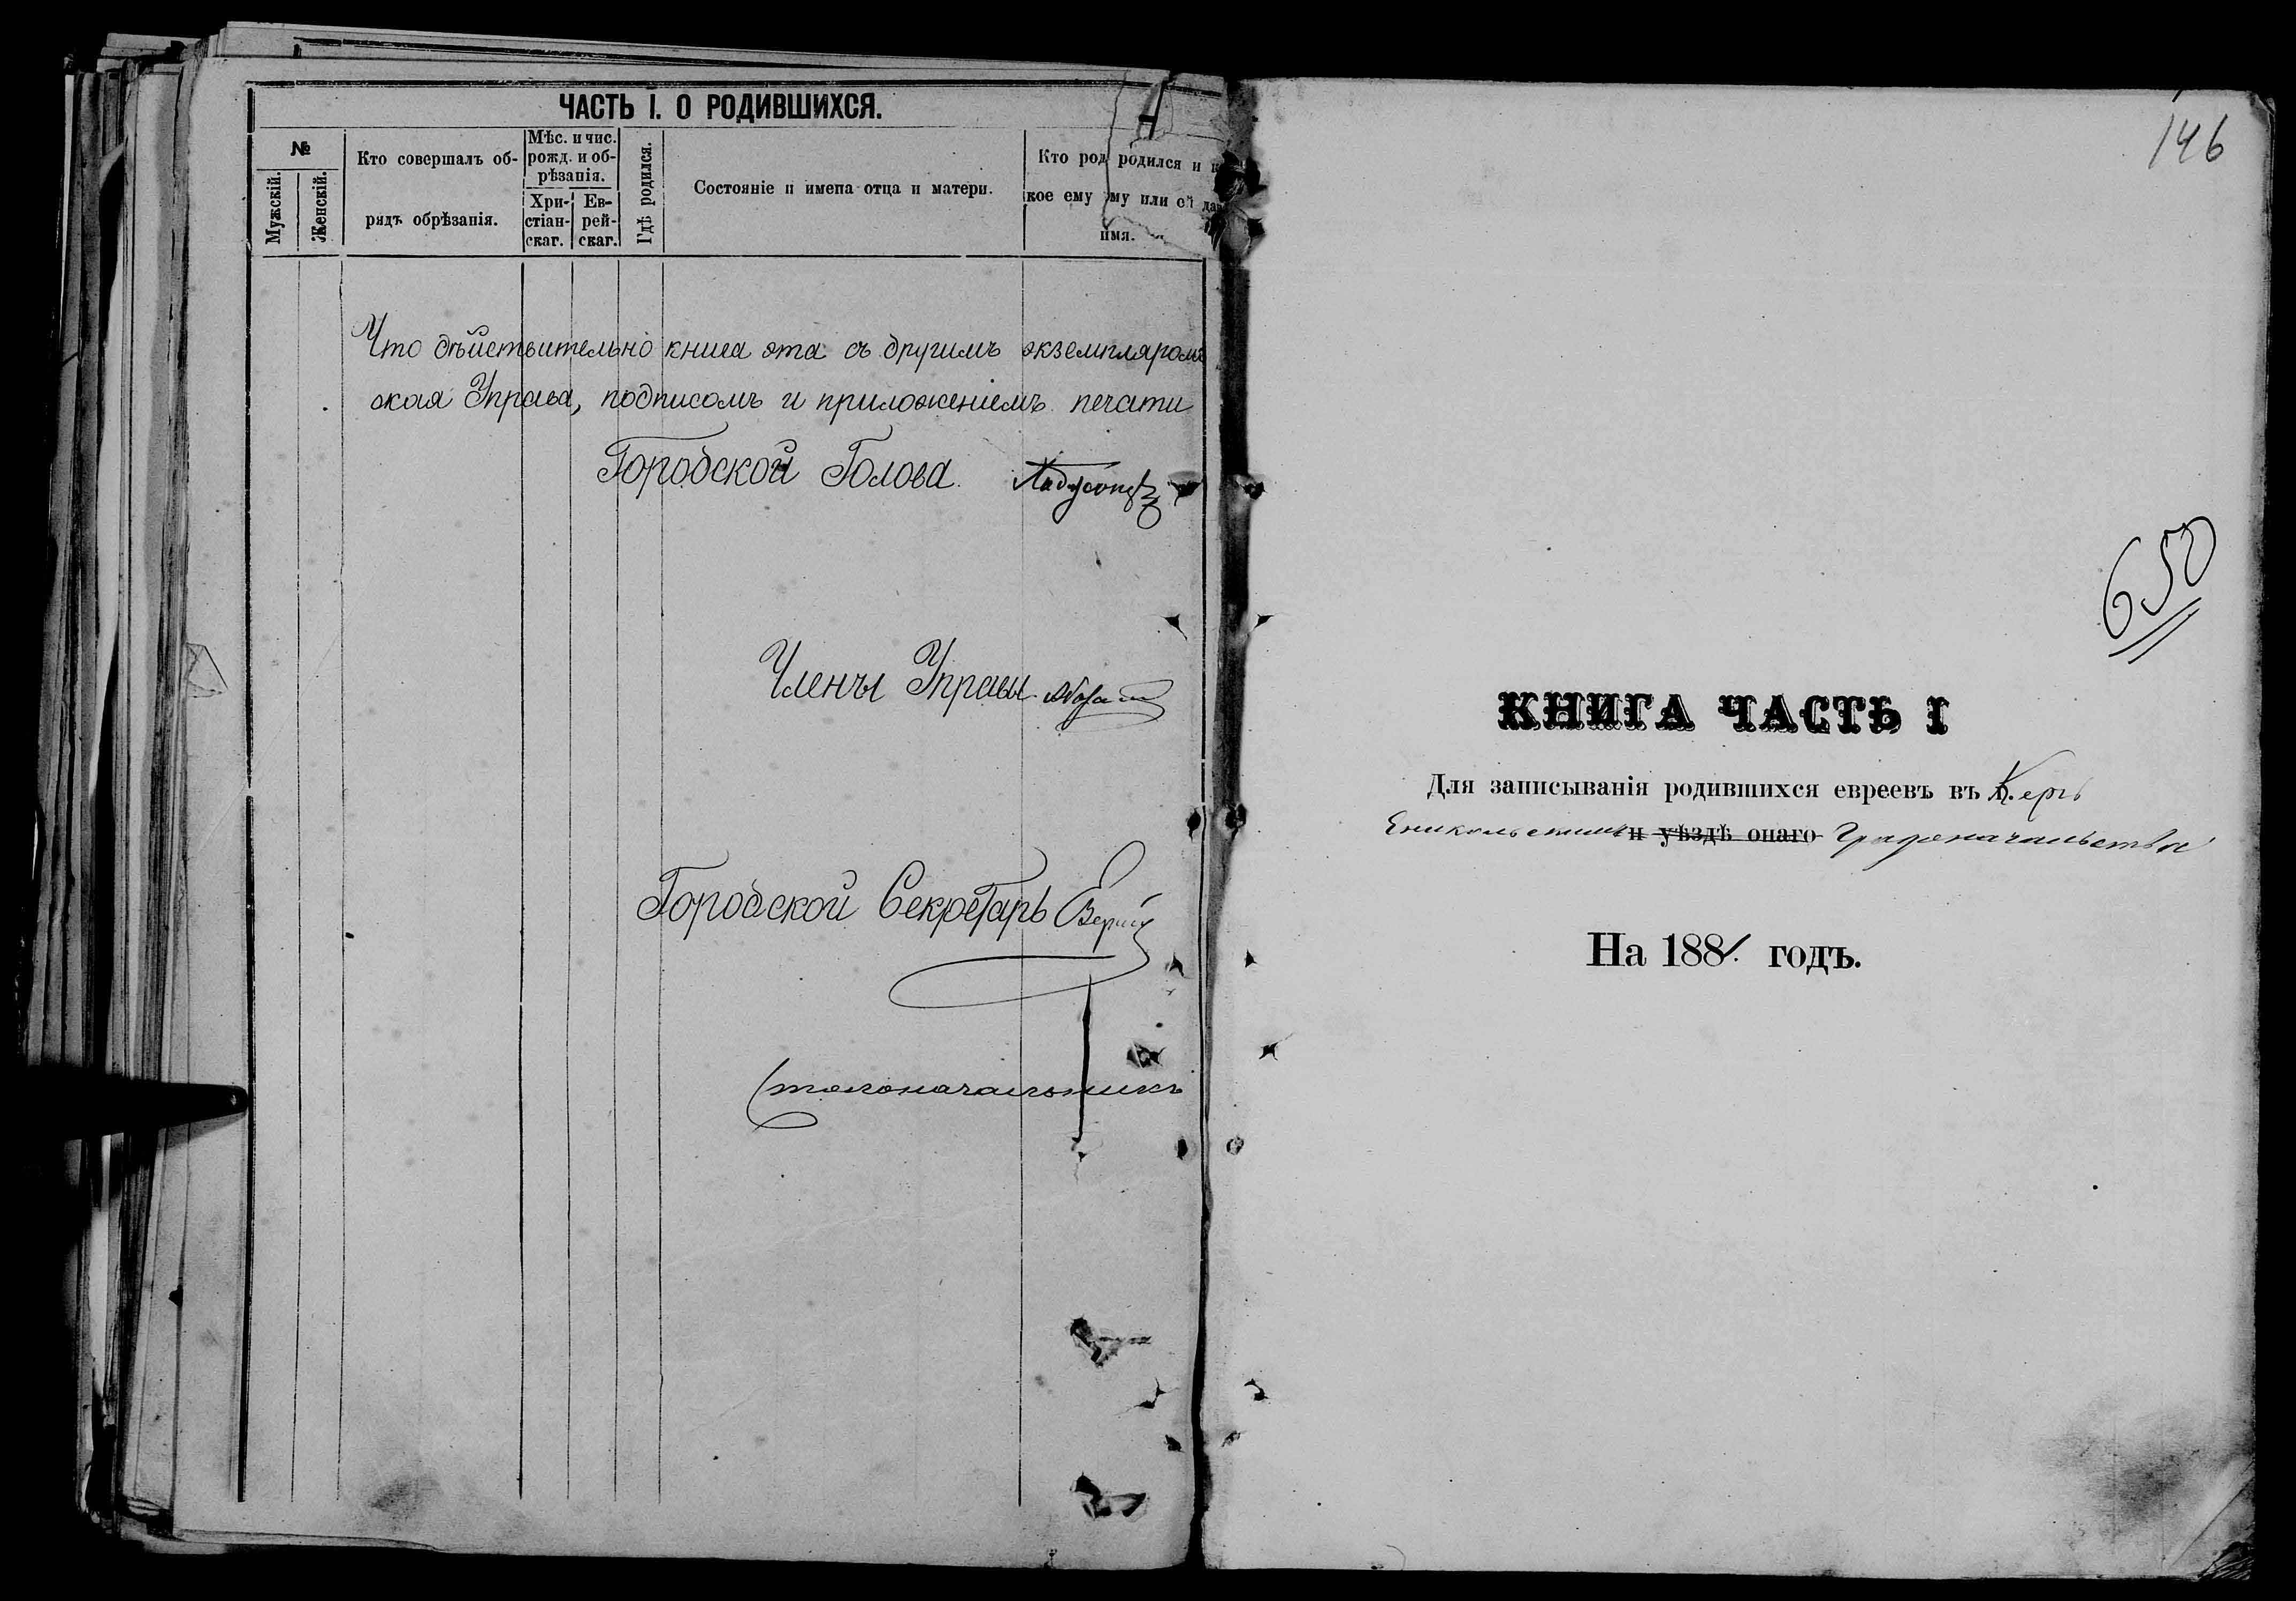 ЧАСТЬ I. О РОДИВШИХСЯ.
№
Мужскій.
Женскій.
Кто совершалъ об-
рядъ обрѣзанія.
Мѣс. и чис.
рожд. и об-
рѣзанія.
Хри-
стіан-
скаг.
Ев-
рей-
скаг.
Гдѣ родился.
Состояніе и имена отца и матери.
Кто род родился и
кое ему му или ей
имя.
Что дѣйствительно книга эта съ другимъ экземпляромъ
ская Управа, подписомъ и приложеніемъ печати
Городской Голова.
Члены Управы
Городской Секретарь
Столоначальникъ
146
650
КНИГА ЧАСТЬ I
Для записыванія родившихся евреевъ въ Керчь
Еникольскомъ и уѣздѣ онаго Градоначальствѣ
На 1881. годъ.